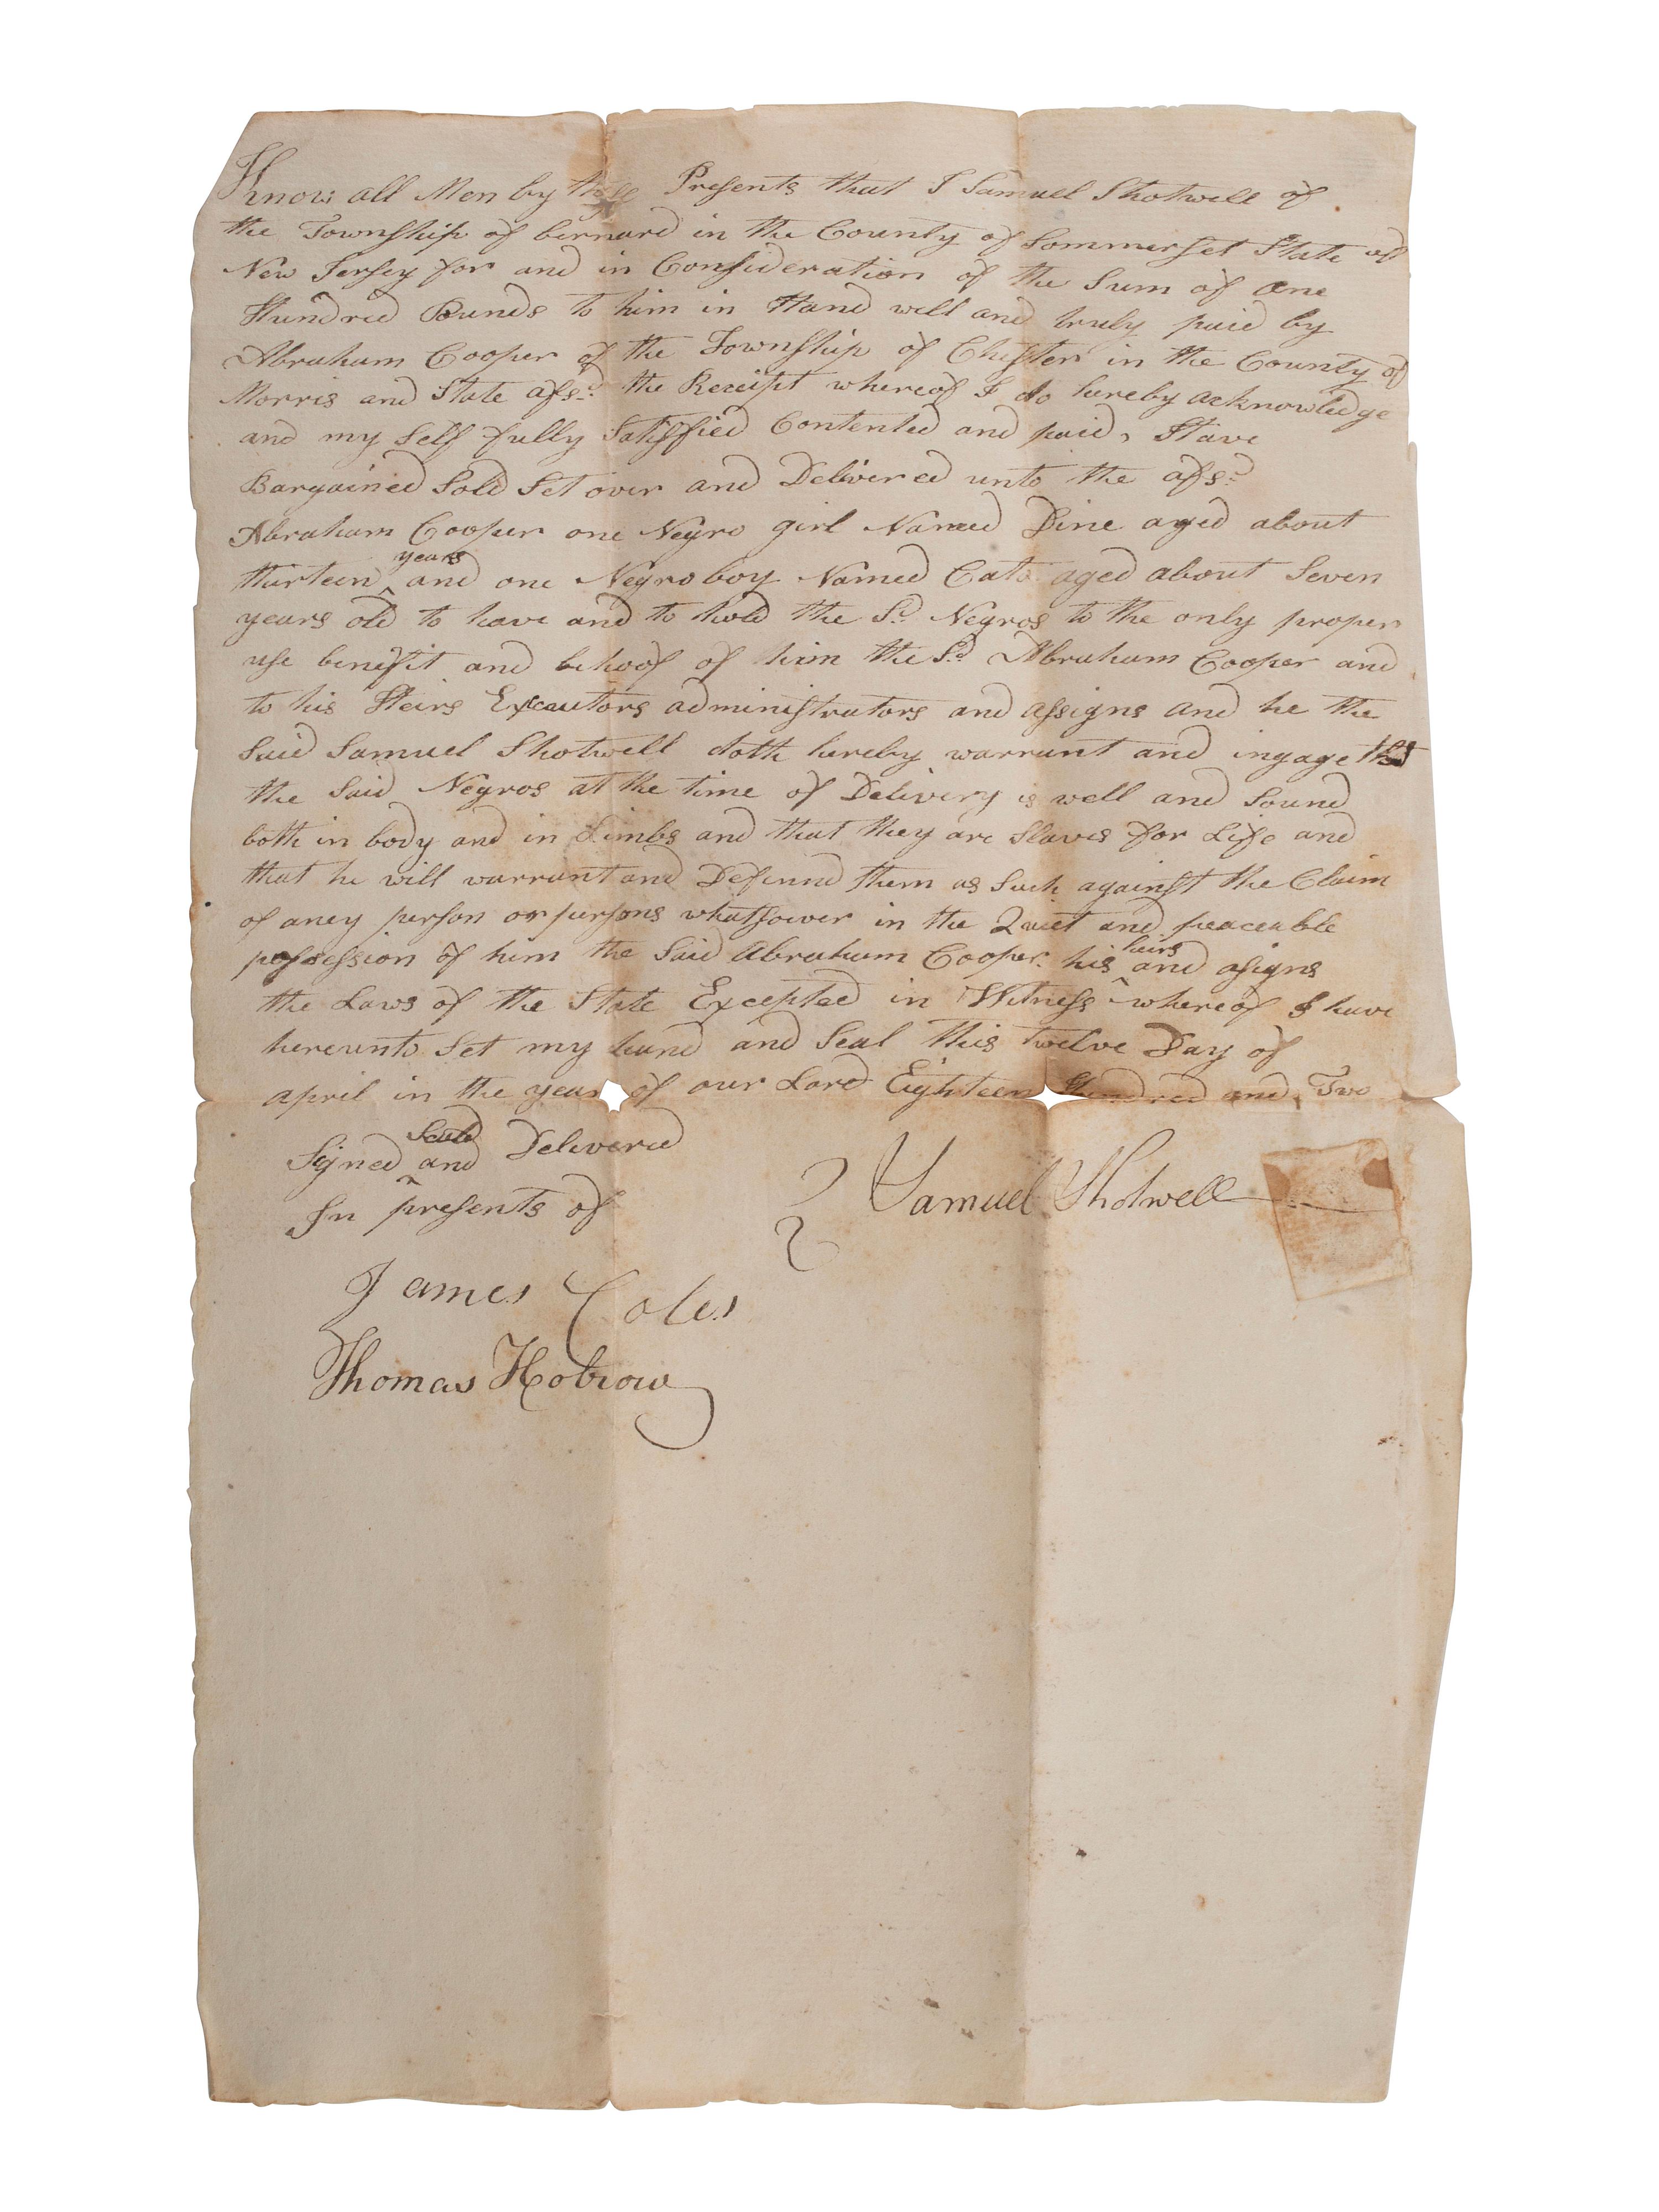 Know all Men by these Presents that I Samuel Shotwell of
the Township of bernard in the County of Sommerset State of
New Jersey for and in Consideration of the Sum of one
Hundred Pounds to him in Hand well and truly paid by
Abraham Cooper of the Township of Chester in the County of
Morris and State afsd. the Receipt whereof I do hereby acknowledge
and my Self fully Satisfied Contented and paid, Have
Bargained Sold Set over and Delivered unto the afsd.
Abraham Cooper one Negro girl Named Dine aged about
thirteen years and one Negro boy Named Cato aged about Seven
years old to have and to hold the Sd. Negros to the only proper
use benifit and behoof of him the Sd. Abraham Cooper and
to his Heirs Executors administrators and assigns and he the
Said Samuel Shotwell doth hereby warrant and ingage that
the Said Negros at the time of Delivery is well and Sound
both in body and in Limbs and that they are Slaves for Life and
that he will warrant and Defennd them as Such against the Claim
of aney person or persons whatsower in the Quiet and peaceable
possession of him the Said Abraham Cooper his hairs and asigns
the Laws of the State Excepted in Witness whereof I have
hereunto Set my hand and Seal this twelve Day of
april in the year of our Lord Eighteen Hundred and Two
Signed Seald and Delivered
In presents of
Samuel Shotwell
James Coles
Thomas Hobrow